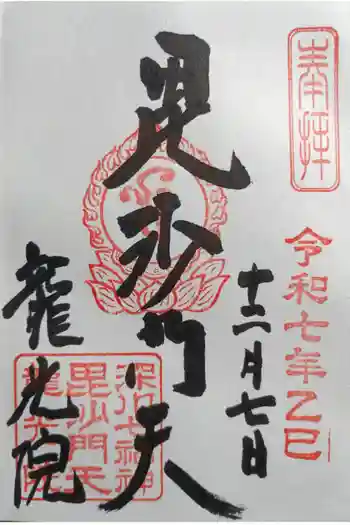 奉拝
令和七年乙巳
十二月七日
毘沙門天
深川七福神
毘沙門天
龍光院
龍光院